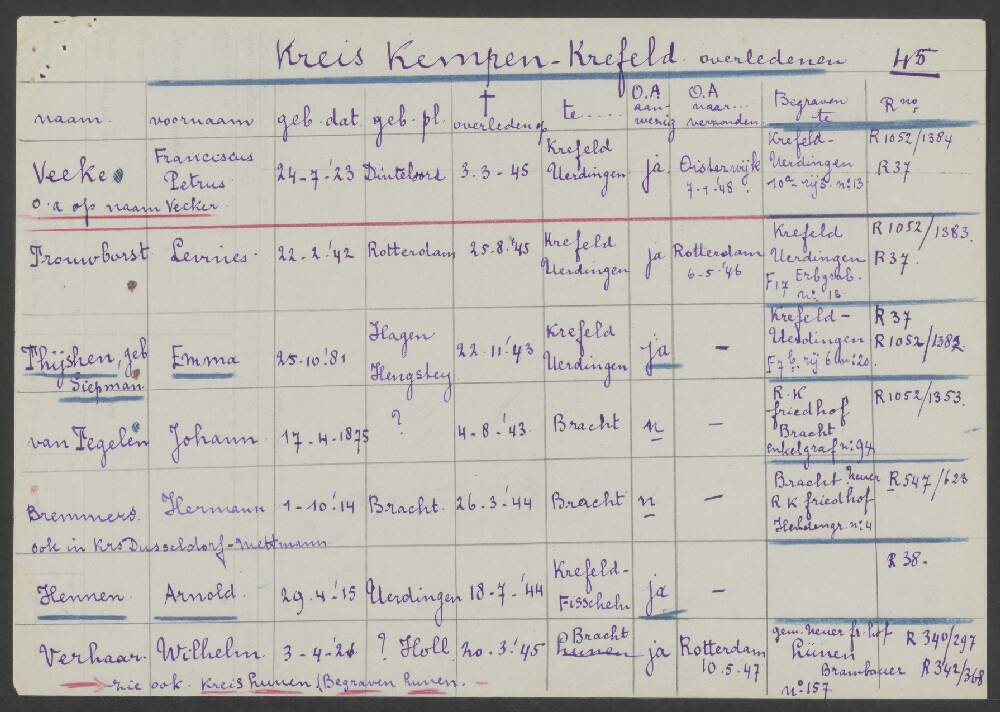 Kreis Kempen-Krefeld overledenen 45
naam. voornaam geb. dat. geb. pl. † overleden op te..... O.A aan-wezig O.A naar... verzonden. Begraven te R no
Veeke Franciscus Petrus 24-7-'23 Dinteloord 3-3-45 Krefeld Uerdingen ja Oisterwijk 7-1-'48. Krefeld-Uerdingen 10a-rij 5. no: 13 R1052/1384 R37
O.a op naam Vecker.
Trouwborst Levinies. 22-2.'42 Rotterdam 25-8.'45 Krefeld Uerdingen ja Rotterdam 6-5.'46 Krefeld Uerdingen F17 Erbgrab. no: 16 R1052/1383. R37.
Thijshen, geb Siepman Emma 25-10.'81 Hagen 22-11.'43 Krefeld Uerdingen ja - Krefeld-Uerdingen F7 b. rij 6 no: 20. R37 R1052/1382.
van Tegelen Johann. 17-4-1875 ? 4-8-'43. Bracht n - R.K friedhof Bracht enkelgraf no: 94 R1052/1353.
Bremmers. Hermann 1-10.'14 Bracht. 26-3.'44 Bracht n - Bracht Neuer R K friedhof no: 4 R547/623
ook in Krs Dusseldorf-Mettmann
Hennen Arnold. 29-4-'15 Uerdingen 18-7-'44 Krefeld-Fisscheln ja - R38.
Verhaar. Wilhelm 3-4-'21 ? Holl. 20-3.'45 Bracht Lünen ja Rotterdam 10.5.47 gem. Neuer fr. hof Lünen Brambauer no: 157 R340/297 R342/368
zie ook Kreis Lunen (Begraven Lunen. -